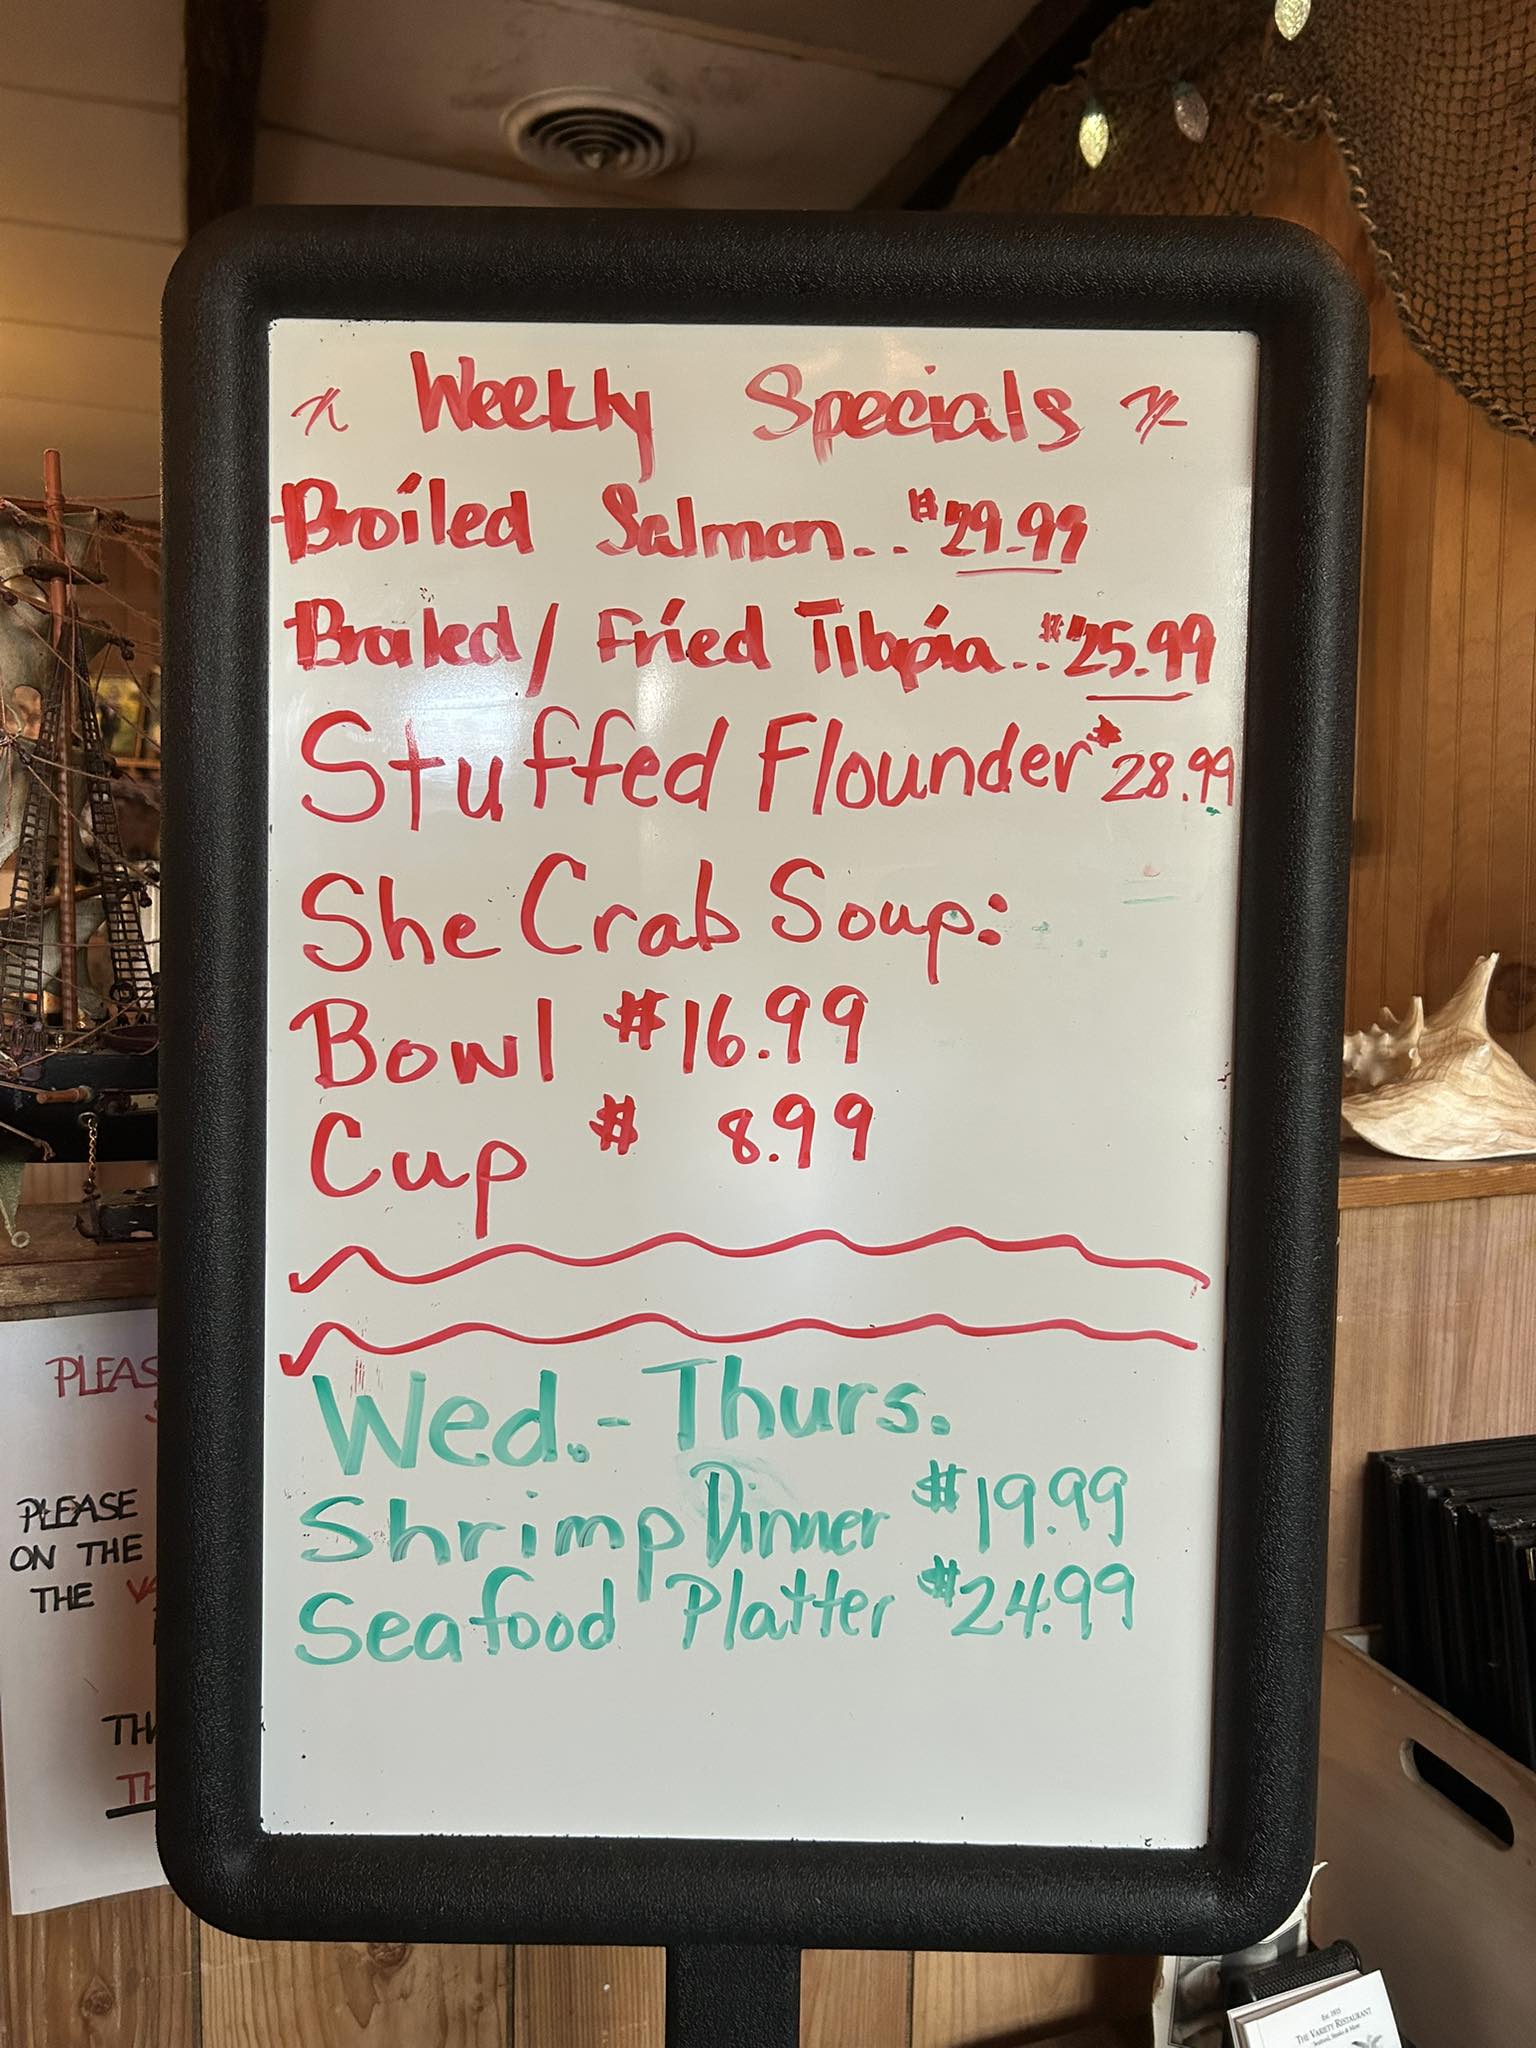 Weekly Specials
Broiled Salmon.. $29.99
Broiled/Fried Tilapia..$25.99
Stuffed Flounder $28.99
She Crab Soup:
Bowl $16.99
Cup $ 8.99
Wed.-Thurs.
Shrimp Dinner $19.99
Seafood Platter $24.99
PLEAS
PLEASE
ON THE
THE
TH
Est. 1935
THE VARIETY RESTAURANT
Seafood, Steaks & More